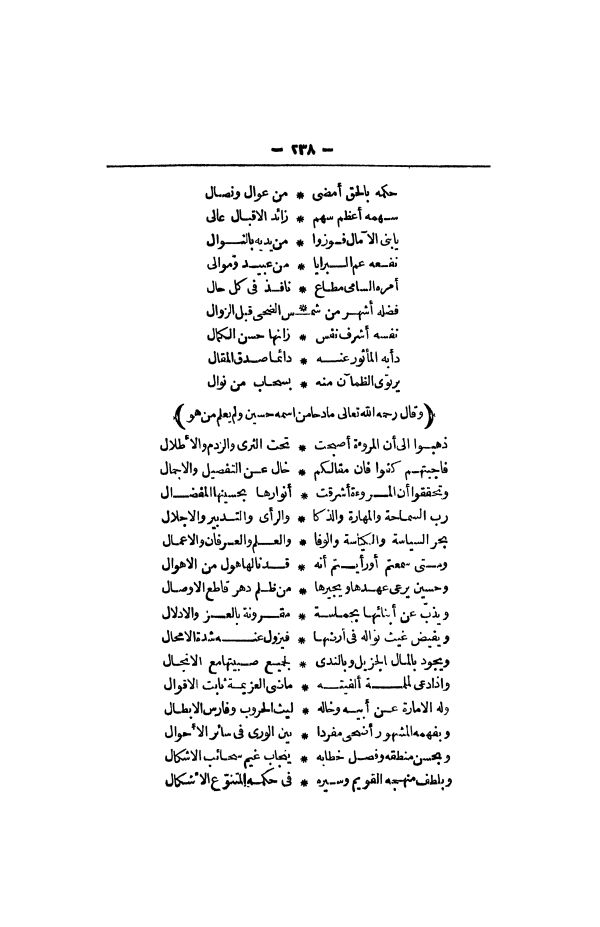 — ٢٣٨ —
حكمه بالحق أمضى * من عوال ونصال
سهمه أعظم سهم * زائد الاقبال عالى
يابنى الآمال فوزوا * من يديه بالنوال
نفعه عم البرايا * من عبيد وموالى
أمره السامى مطاع * نافذ فى كل حال
فضله أشهر من شمـ * ـس الضحى قبل الزوال
نفسه أشرف نفس * زانها حسن الكمال
دأبه المأثور عنه * دائما صدق المقال
يرتوى الظمآن منه * بسحاب من نوال
﴿وقال رحمه الله تعالى مادحا من اسمه حسين ولم يعلم من هو﴾
ذهبوا الى أن المروءة أصبحت * تحت الثرى والردم والأطلال
فاجبتهم كفوا فان مقالكم * خال عن التفصيل والاجمال
وتحققوا أن المروءة أشرقت * أنوارها بحسينها المفضال
رب السماحة والمهارة والذكا * والرأى والتدبير والاجلال
بحر السياسة والكياسة والوفا * والعلم والعرفان والاعمال
ومتى سمعتم أو رأيتم أنه * قد نالها هول من الاهوال
وحسين يرعى عهدها ويجيرها * من ظلم دهر قاطع الاوصال
ويذب عن أبنائها بحماسة * مقرونة بالعز والادلال
ويفيض غيث نواله فى أرضها * فيزول عنه شدة الامحال
ويجود بالمال الجزيل وبالندى * لجميع صبيتها مع الانجال
واذا دعى لملمة ألفيته * ماضى العزيمة ثابت الاقوال
وله الامارة عن أبيه وخاله * ليث الحروب وفارس الابطال
وبفهمه المشهور أضحى مفردا * بين الورى فى سائر الأحوال
وبحسن منطقه وفصل خطابه * ينجاب غيم سحائب الاشكال
وبلطف منهجه القويم وسيره * فى حكمه المتنوع الأشكال